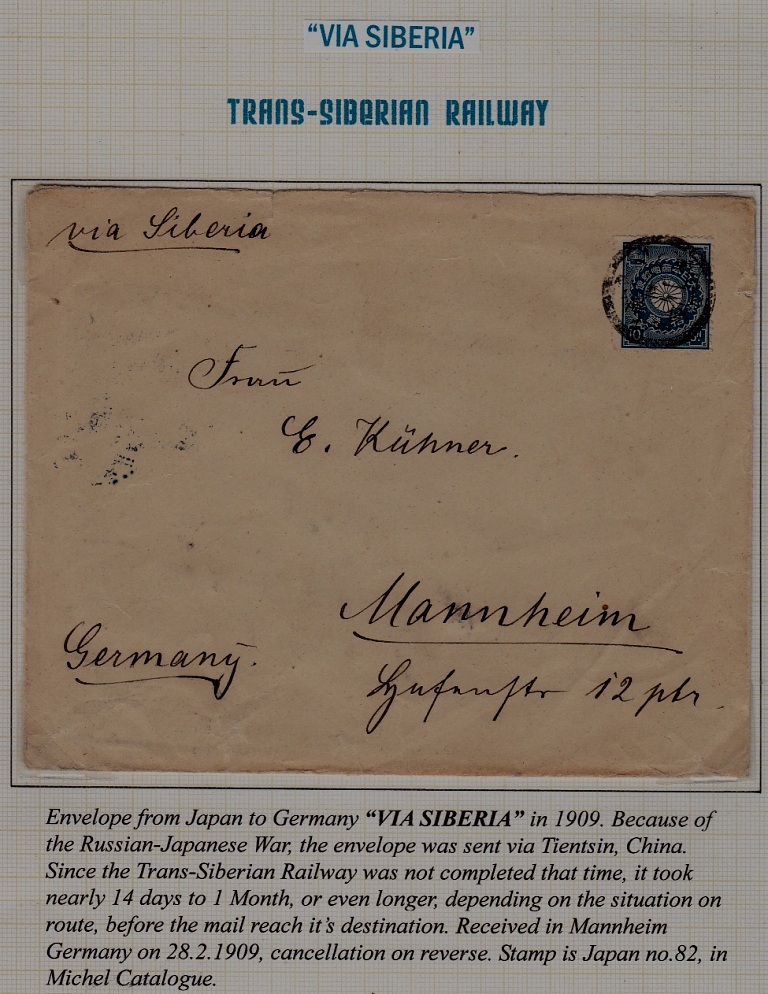 “VIA SIBERIA”
TRANS-SIBERIAN RAILWAY
via Siberia
10
Frau
E. Kühner.
Mannheim
Germany.
Hafenstr 12 ptr.
Envelope from Japan to Germany “VIA SIBERIA” in 1909. Because of
the Russian-Japanese War, the envelope was sent via Tientsin, China.
Since the Trans-Siberian Railway was not completed that time, it took
nearly 14 days to 1 Month, or even longer, depending on the situation on
route, before the mail reach it’s destination. Received in Mannheim
Germany on 28.2.1909, cancellation on reverse. Stamp is Japan no.82, in
Michel Catalogue.